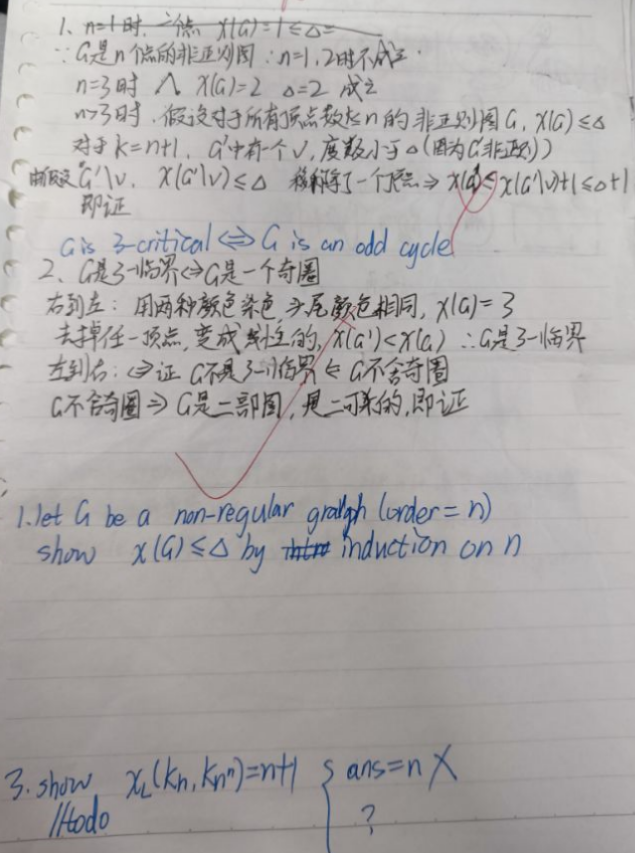 1、n=1时, 一点 χ(G)=1≤Δ=
∵G是n个点的非正则图 ∴n=1,2时不成立.
n=3时 Λ χ(G)=2 Δ=2 成立
n>3时. 假设对于所有顶点数≤n的非正则图G, χ(G)≤Δ
对于k=n+1, G'中有一个v, 度数小于Δ(因为G'非正则)
由假设G'\v, χ(G'\v)≤Δ 移除了一个顶点⇒χ(G')≤χ(G'\v)+1≤Δ+1
即证
G is 3-critical ⇔ G is an odd cycle
2、G是3-临界⇔G是一个奇圈
右到左: 用两种颜色染色,首尾颜色相同, χ(G)=3
去掉任一顶点, 变成 的, χ(G')<χ(G) ∴G是3-临界
左到右: ⇔证 G不是3-临界 ⇐ G不含奇圈
G不含奇圈⇒G是二部图, 是二可染的, 即证
1. let G be a non-regular graph (order = n)
show χ(G)≤Δ by induction on n
3. show χL(Kn,Knⁿ)=n+1 { ans=n X
//todo ?